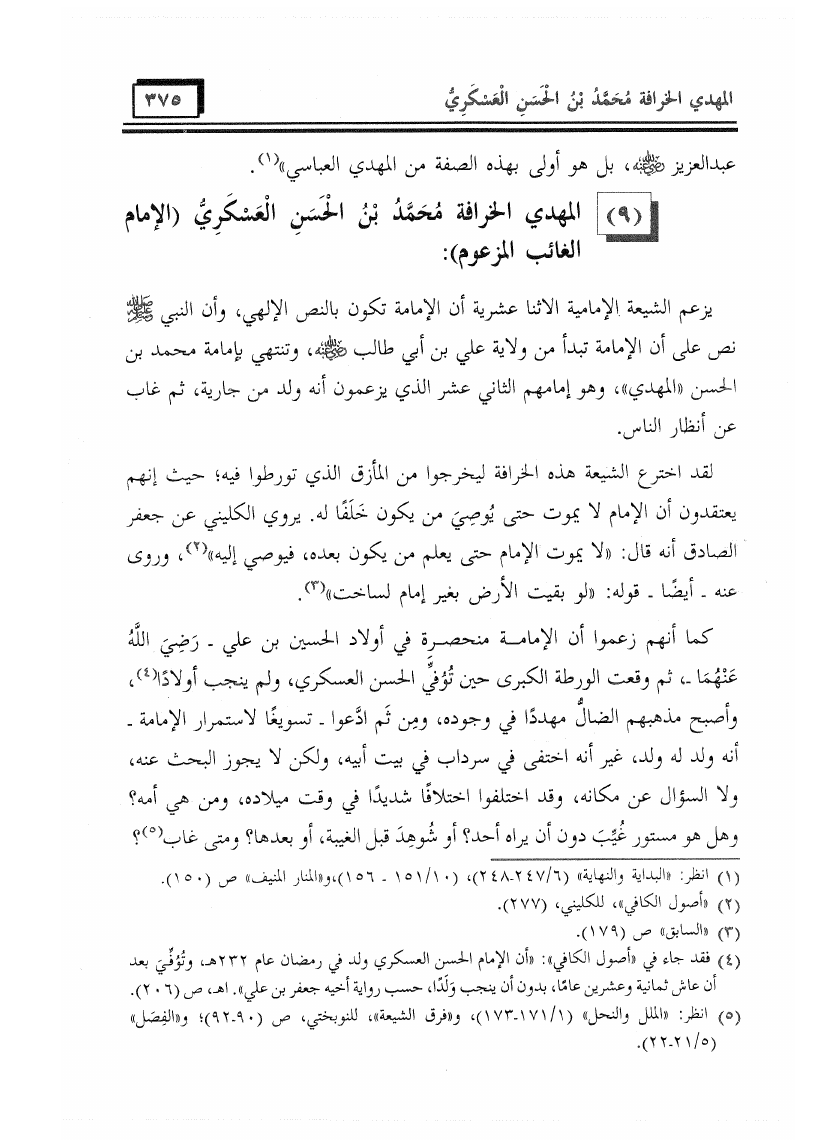 المهدي الخرافة مُحَمَّدُ بْنُ الْحَسَنِ الْعَسْكَرِيُّ
٣٧٥
عبدالعزيز رضي الله عنه، بل هو أولى بهذه الصفة من المهدي العباسي»(١).
(٩) المهدي الخرافة مُحَمَّدُ بْنُ الْحَسَنِ الْعَسْكَرِيُّ (الإمام
الغائب المزعوم):
يزعم الشيعة الإمامية الاثنا عشرية أن الإمامة تكون بالنص الإلهي، وأن النبي ﷺ
نص على أن الإمامة تبدأ من ولاية علي بن أبي طالب رضي الله عنه، وتنتهي بإمامة محمد بن
الحسن «المهدي»، وهو إمامهم الثاني عشر الذي يزعمون أنه ولد من جارية، ثم غاب
عن أنظار الناس.
لقد اخترع الشيعة هذه الخرافة ليخرجوا من المأزق الذي تورطوا فيه؛ حيث إنهم
يعتقدون أن الإمام لا يموت حتى يُوصِيَ من يكون خَلَفًا له. يروي الكليني عن جعفر
الصادق أنه قال: «لا يموت الإمام حتى يعلم من يكون بعده، فيوصي إليه»(٢)، وروى
عنه ـ أيضًا ـ قوله: «لو بقيت الأرض بغير إمام لساخت»(٣).
كما أنهم زعموا أن الإمامة منحصرة في أولاد الحسين بن علي ـ رَضِيَ اللَّهُ
عَنْهُمَا ـ، ثم وقعت الورطة الكبرى حين تُوُفِّيَ الحسن العسكري، ولم ينجب أولادًا(٤)،
وأصبح مذهبهم الضالُّ مهددًا في وجوده، ومِن ثَم ادَّعوا ـ تسويغًا لاستمرار الإمامة ـ
أنه ولد له ولد، غير أنه اختفى في سرداب في بيت أبيه، ولكن لا يجوز البحث عنه،
ولا السؤال عن مكانه، وقد اختلفوا اختلافًا شديدًا في وقت ميلاده، ومن هي أمه؟
وهل هو مستور غُيِّبَ دون أن يراه أحد؟ أو شُوهِدَ قبل الغيبة، أو بعدها؟ ومتى غاب(٥)؟
(١) انظر: «البداية والنهاية» (٢٤٧/٦-٢٤٨)، (١٥١/١٠ ـ ١٥٦)،و«المنار المنيف» ص (١٥٠).
(٢) «أصول الكافي»، للكليني، (٢٧٧).
(٣) «السابق» ص (١٧٩).
(٤) فقد جاء في «أصول الكافي»: «أن الإمام الحسن العسكري ولد في رمضان عام ٢٣٢هـ، وتُوُفِّيَ بعد
أن عاش ثمانية وعشرين عامًا، بدون أن ينجب وَلَدًا، حسب رواية أخيه جعفر بن علي». اهـ، ص (٢٠٦).
(٥) انظر: «الملل والنحل» (١٧١/١-١٧٣)، و«فرق الشيعة»، للنوبختي، ص (٩٠-٩٢)؛ و«الفِصَل»
(٢١/٥-٢٢).